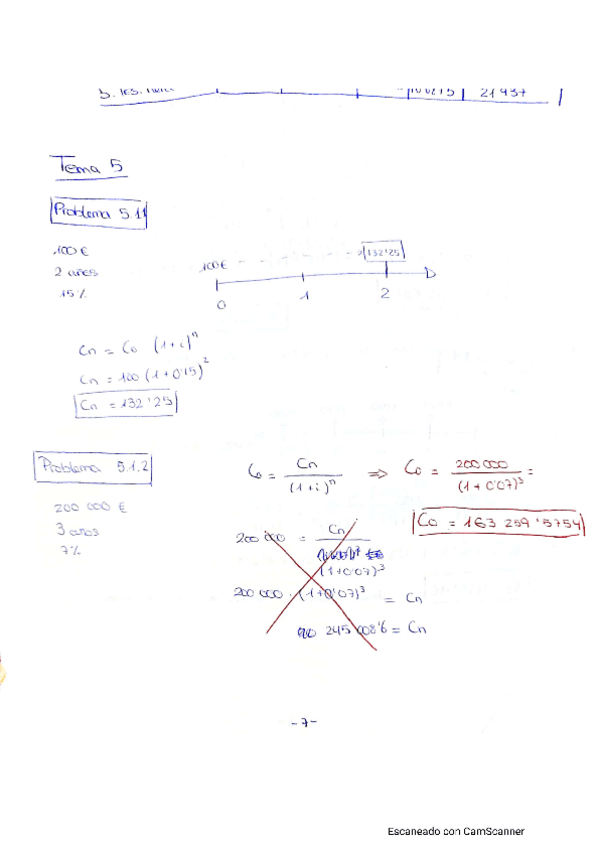 21 937
Tema 5
Problema 5.1.1
100 €
2 años
15 %
100 € 132'25
0 1 2
Cn = Co (1+i)^n
Cn = 100 (1+0'15)^2
Cn = 132'25
Problema 5.1.2
200 000 €
3 años
7 %
Co = Cn / (1+i)^n ⇒ Co = 200 000 / (1+0'07)^3 =
Co = 163 259'5754
200 000 = Cn / (1+0'07)^3
200 000 · (1+0'07)^3 = Cn
245 008'6 = Cn
-7-
Escaneado con CamScanner